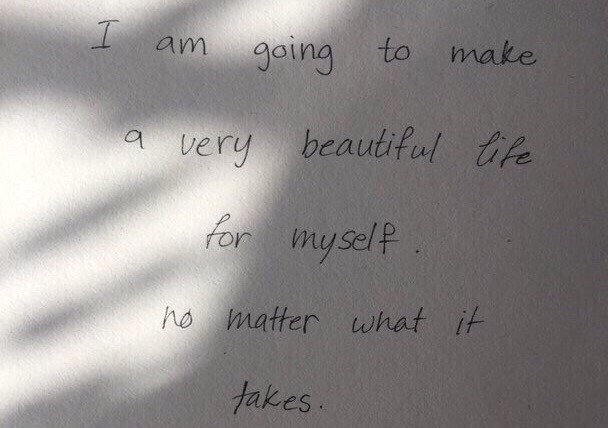 I am going to make
a very beautiful life
for myself.
no matter what it
takes.